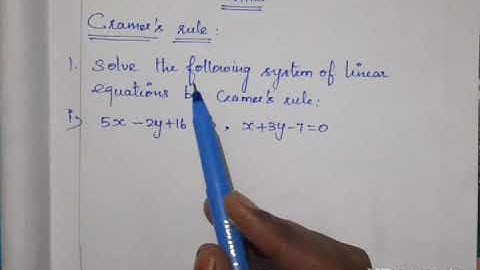 Cramer's rule:
1. Solve the following system of linear
equations Cramer's rule:
i) 5x - 2y + 16 , x + 3y - 7 = 0